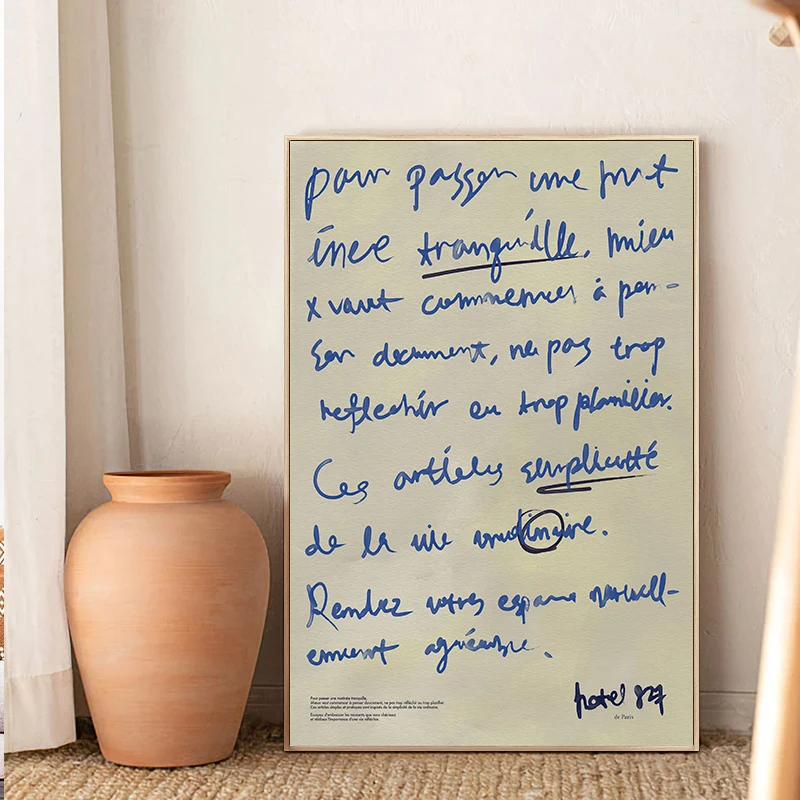 pour passer une
tranquille, mieu
x vaut commencer à pen-
ser document, ne pas trop
reflechir ou trop planifier.
Ces articles simplicité
de la vie
Rendez votre espace
agréable.
Pour passer une matinée tranquille,
Mieux vaut commencer à penser doucement, ne pas trop réfléchir ou trop planifier.
Ces articles simples et pratiques sont inspirés de la simplicité de la vie ordinaire.
Essayez d'embrasser les moments que vous chérissez
et réalisez l'importance d'une vie réfléchie.
hotel 827
de Paris